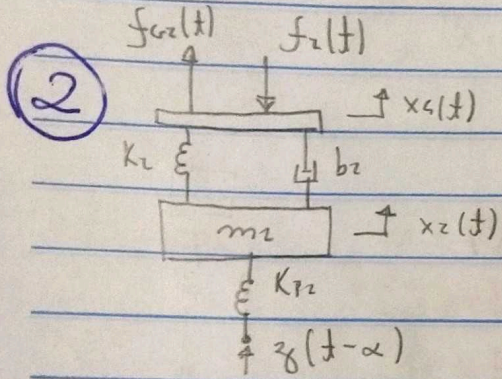 fG2(t) f2(t)
2
x4(t)
K2 b2
m2 x2(t)
Kp2
z(t-α)